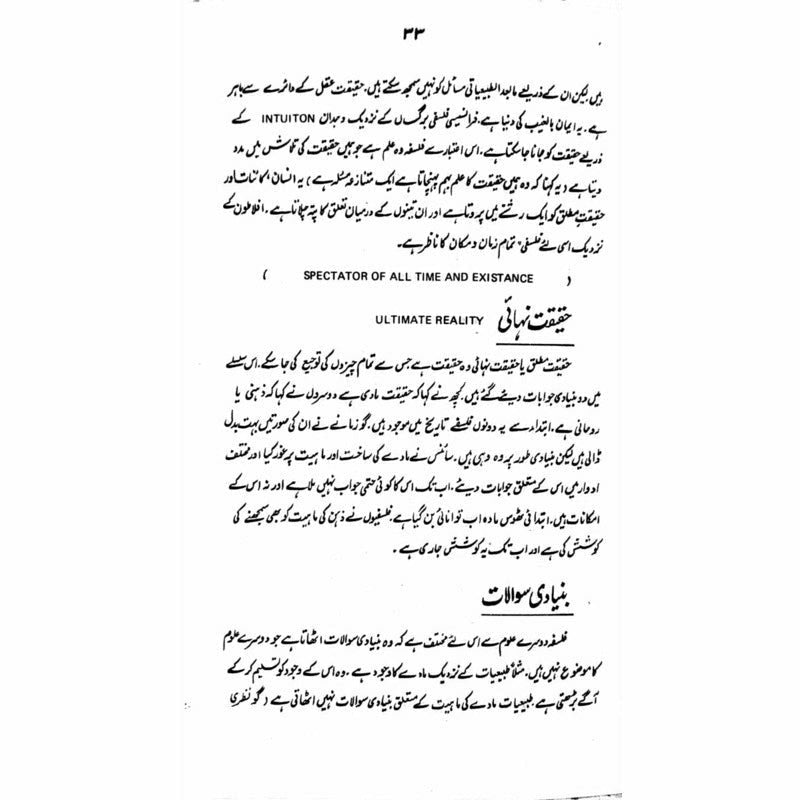 ۳۳
ہیں لیکن ان کے ذریعے مابعد الطبیعیاتی مسائل کو نہیں سمجھ سکتے ہیں۔ حقیقت عقل کے دائرے سے باہر
ہے۔ یہ ایمان بالغیب کی دنیا ہے۔ فرانسیسی فلسفی برگساں کے نزدیک وجدان INTUITON کے
ذریعے حقیقت کو جانا جا سکتا ہے۔ اس اعتبار سے فلسفہ وہ علم ہے جو ہمیں حقیقت کی تلاش میں مدد
دیتا ہے (یہ کہنا کہ وہ ہمیں حقیقت کا علم بہم پہنچاتا ہے ایک متنازعہ مسئلہ ہے) یہ انسان، کائنات اور
حقیقت مطلق کو ایک رشتے میں پروتا ہے اور ان تینوں کے درمیان تعلق کا پتہ چلاتا ہے۔ افلاطون کے
نزدیک اسی لئے فلسفی "تمام زمان و مکان کا ناظر ہے۔
( SPECTATOR OF ALL TIME AND EXISTANCE )
حقیقت نہائی ULTIMATE REALITY
حقیقت مطلق یا حقیقت نہائی وہ حقیقت ہے جس سے تمام چیزوں کی توجیع کی جا سکے۔ اس سلسلے
میں دو بنیادی جوابات دیئے گئے ہیں۔ کچھ نے کہا کہ حقیقت مادی ہے دوسروں نے کہا کہ ذہنی یا
روحانی ہے۔ ابتداء سے یہ دونوں فلسفے تاریخ میں موجود ہیں۔ گو زمانے نے ان کی صورتیں بہت بدل
ڈالی ہیں لیکن بنیادی طور پر وہ وہی ہیں۔ سائنس نے مادے کی ساخت اور ماہیت پر غور کیا اور مختلف
ادوار میں اس کے متعلق جوابات دیئے۔ اب تک اس کا کوئی حتمی جواب نہیں ملا ہے اور نہ اس کے
امکانات ہیں۔ ابتدائی ٹھوس مادہ اب توانائی بن گیا ہے۔ فلسفیوں نے ذہن کی ماہیت کو بھی سمجھنے کی
کوشش کی ہے اور اب تک یہ کوشش جاری ہے۔
بنیادی سوالات
فلسفہ دوسرے علوم سے اس لئے مختلف ہے کہ وہ بنیادی سوالات اٹھاتا ہے جو دوسرے علوم
کا موضوع نہیں ہیں۔ مثلاً طبیعیات کے نزدیک مادے کا وجود ہے۔ وہ اس کے وجود کو تسلیم کر کے
آگے بڑھتی ہے۔ طبیعیات مادے کی ماہیت کے متعلق بنیادی سوالات نہیں اٹھاتی ہے (گو نظری